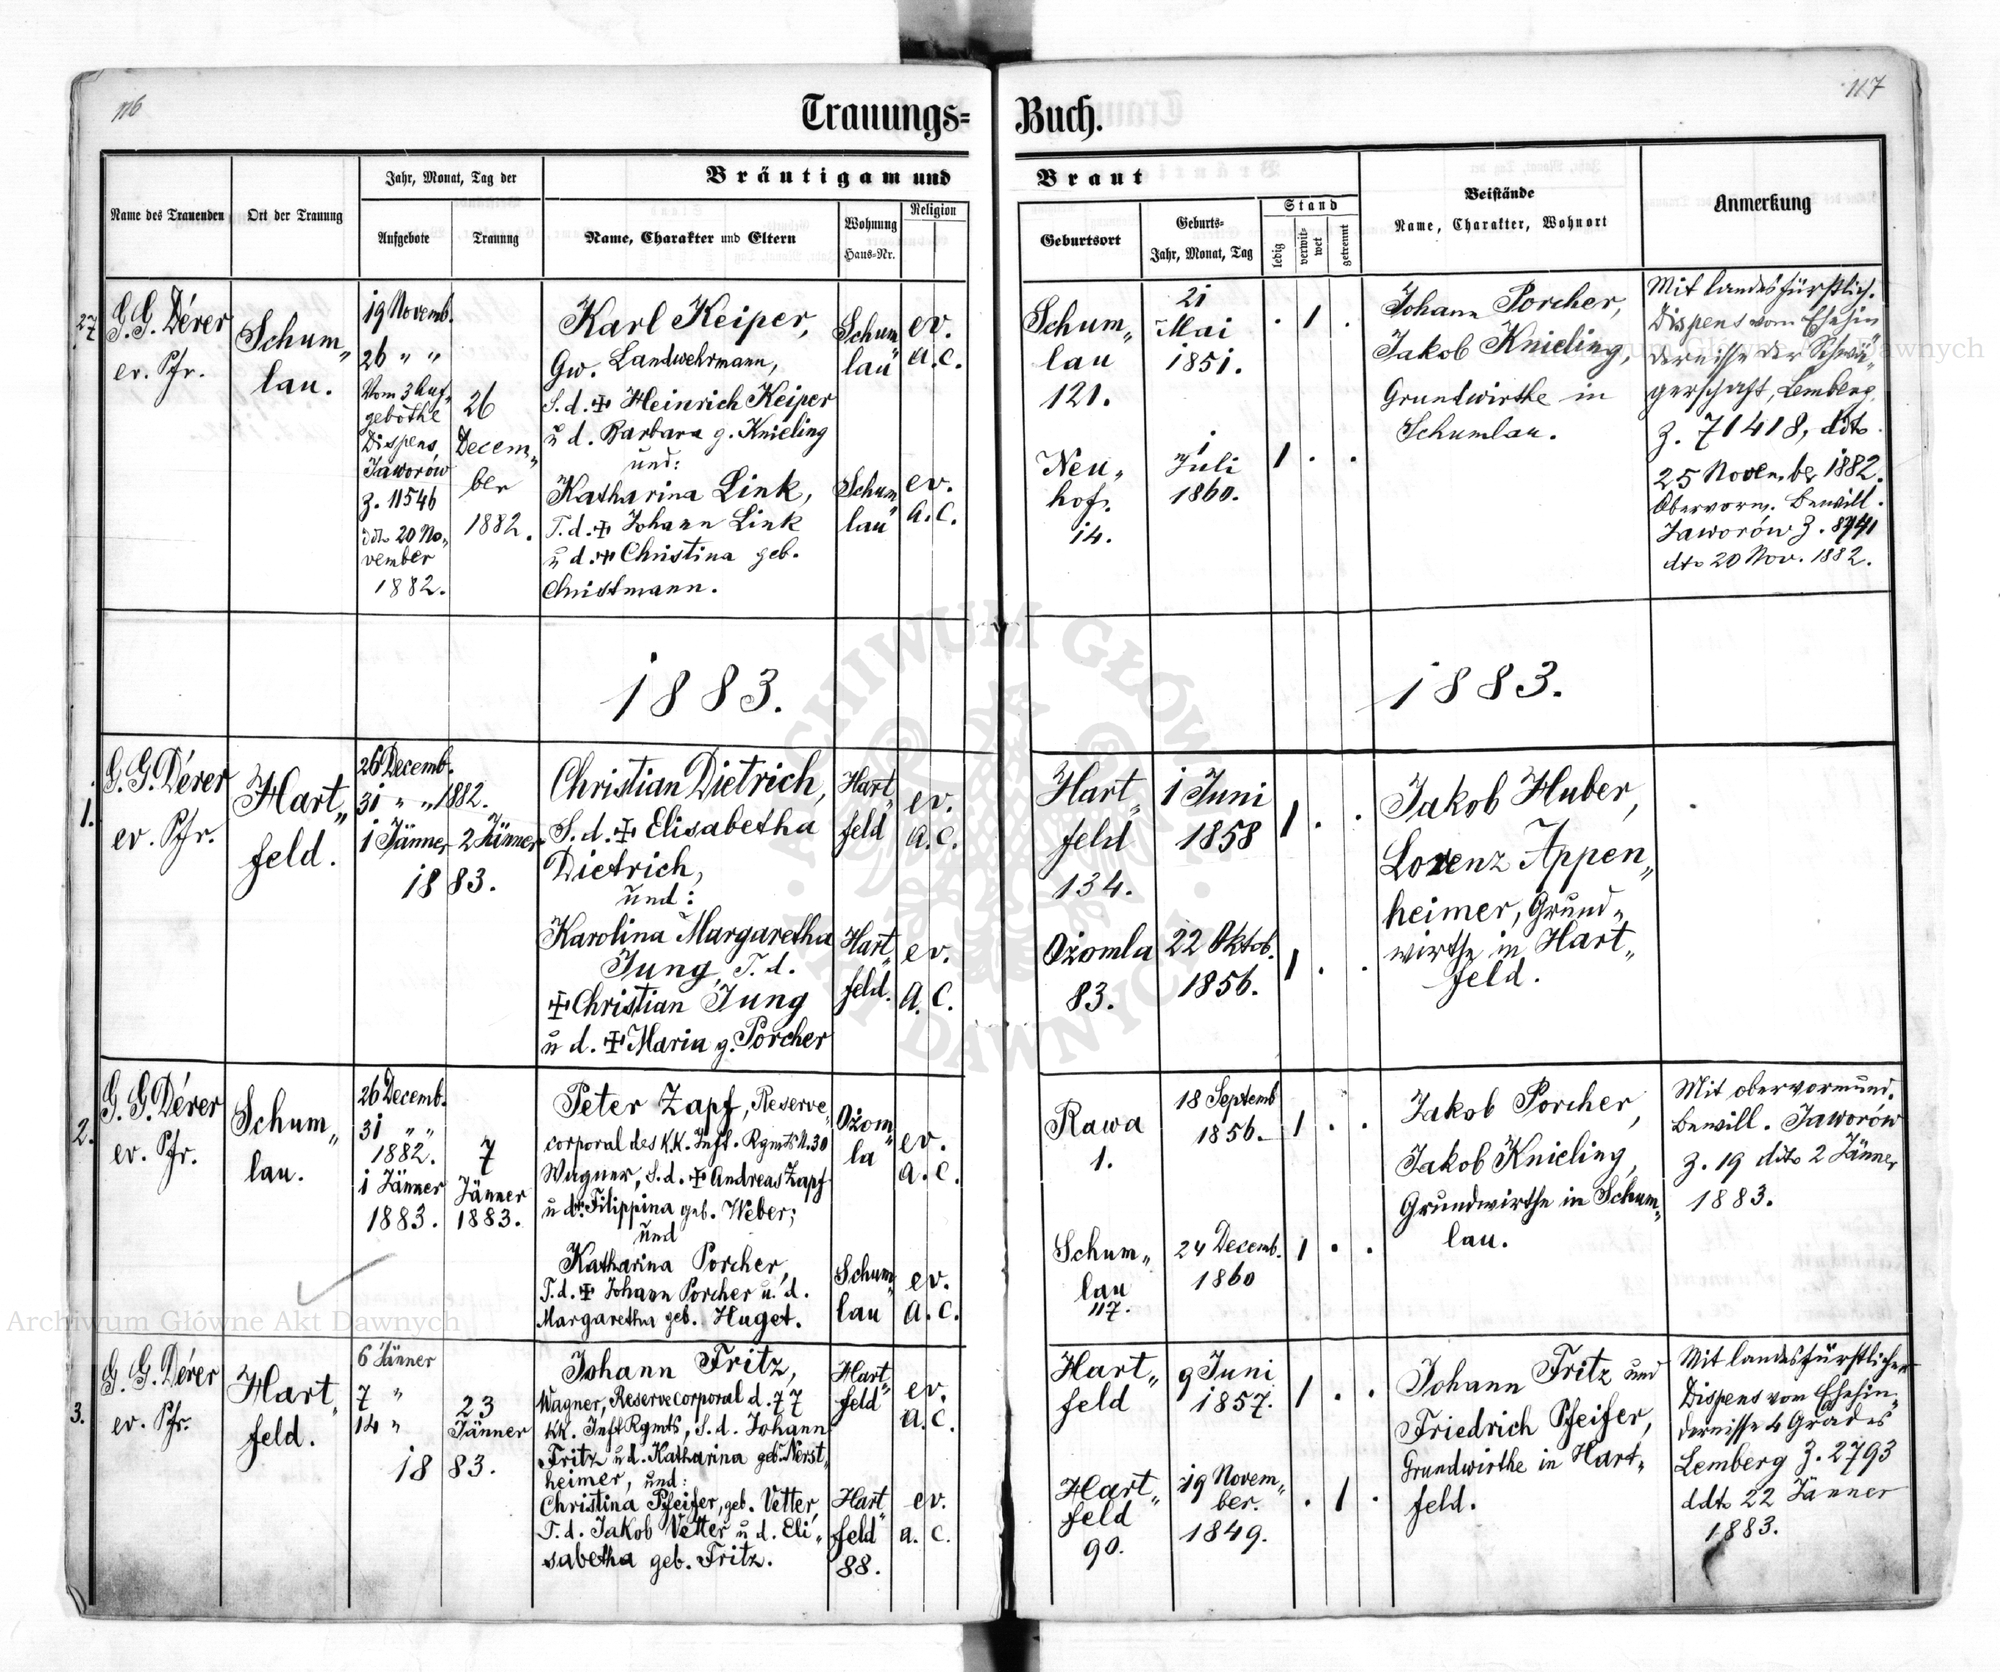 116
117
Trauungs= Buch.
Name des Trauenden
Ort der Trauung
Jahr, Monat, Tag der
Aufgebote
Trauung
Bräutigam und Braut
Name, Charakter und Eltern
Wohnung
Haus=Nr.
Religion
Geburtsort
Geburts=
Jahr, Monat, Tag
Stand
ledig
verwit=
wet
getrennt
Beistände
Name, Charakter, Wohnort
Anmerkung
27
G. G. Dérer
ev. Pfr.
Schum„
lau.
19 Novemb.
26 „ „
Vom 3 Auf„
gebothe
Dispens,
Jaworów
Z. 11546
ddto 20 No„
vember
1882.
26
Decem„
ber
1882.
Karl Keiper,
Gw. Landwehrmann,
S. d. ✠ Heinrich Keiper
u d. Barbara g. Knieling
und:
Katharina Link,
T. d. ✠ Johann Link
u d. ✠ Christina geb.
Christmann.
Schum„
lau
ev.
a. c.
Schum„
lau
ev.
a. c.
Schum„
lau
121.
21
Mai
1851.
. 1 .
Neu„
hof.
14.
1
Juli
1860.
1 . .
Johann Porcher,
Jakob Knieling,
Grundwirthe in
Schumlau.
Mit landesfürstlich.
Dispens vom Ehehin„
dernisse der Schwä„
gerschaft, Lemberg
Z. 71418, ddto
25 November 1882.
Obervorm. Bewill.
Jaworów Z. 8441
dto 20 Nov. 1882.
1883.
1883.
1.
G. G. Dérer
ev. Pfr.
Hart„
feld.
26 Decemb.
31 „ „ 1882.
1 Jänner
2 Jänner
1883.
Christian Dietrich,
S. d. ✠ Elisabetha
Dietrich,
und:
Karolina Margaretha
Jung, T. d.
✠ Christian Jung
u d. ✠ Maria g. Porcher
Hart„
feld
ev.
a. c.
Hart„
feld.
ev.
a. c.
Hart„
feld
134.
1 Juni
1858
1 . .
Ożomla
83.
22 Oktob.
1856.
1 . .
Jakob Huber,
Lorenz Appen„
heimer, Grund„
wirthe in Hart„
feld.
.
2.
G. G. Dérer
ev. Pfr.
Schum„
lau.
26 Decemb.
31 „ „
1882.
1 Jänner
1883.
7
Jänner
1883.
Peter Zapf, Reserve„
corporal des k.k. Inft. Rgmts N. 30
Wagner, S. d. ✠ Andreas Zapf
u d. Filippina geb. Weber;
und
Katharina Porcher,
T. d. ✠ Johann Porcher u. d.
Margaretha geb. Huget.
Ożom„
la
ev.
a. c.
Schum„
lau
ev.
a. c.
Rawa
1.
18 Septemb
1856.
1 . .
Schum„
lau
117.
24 Decemb.
1860
1 . .
Jakob Porcher,
Jakob Knieling,
Grundwirthe in Schum„
lau.
Mit obervormund.
Bewill. Jaworów
Z. 19 ddto 2 Jänner
1883.
3.
G. G. Dérer
ev. Pfr.
Hart„
feld.
6 Jänner
7 „
14 „
23
Jänner
1883.
Johann Fritz,
Wagner, Reservecorporal d. 77
kk. Inft Rgmts, S. d. Johann
Fritz u d. Katharina geb. Nerst„
heimer, und:
Christina Pfeifer, geb. Vetter,
T. d. Jakob Vetter u d. Eli„
sabetha geb. Fritz.
Hart„
feld
ev.
a. c.
Hart„
feld
88.
ev.
a. c.
Hart„
feld
9 Juni
1857.
1 . .
Hart„
feld
90.
19 Novem„
ber.
1849.
. 1 .
Johann Fritz und
Friedrich Pfeifer,
Grundwirthe in Hart„
feld.
Mit landesfürstlicher
Dispens vom Ehehin„
dernisse 4 Grades
Lemberg Z. 2793
ddto 22 Jänner
1883.
Archiwum Główne Akt Dawnych
ARCHIWUM GŁÓWNE AKT DAWNYCH